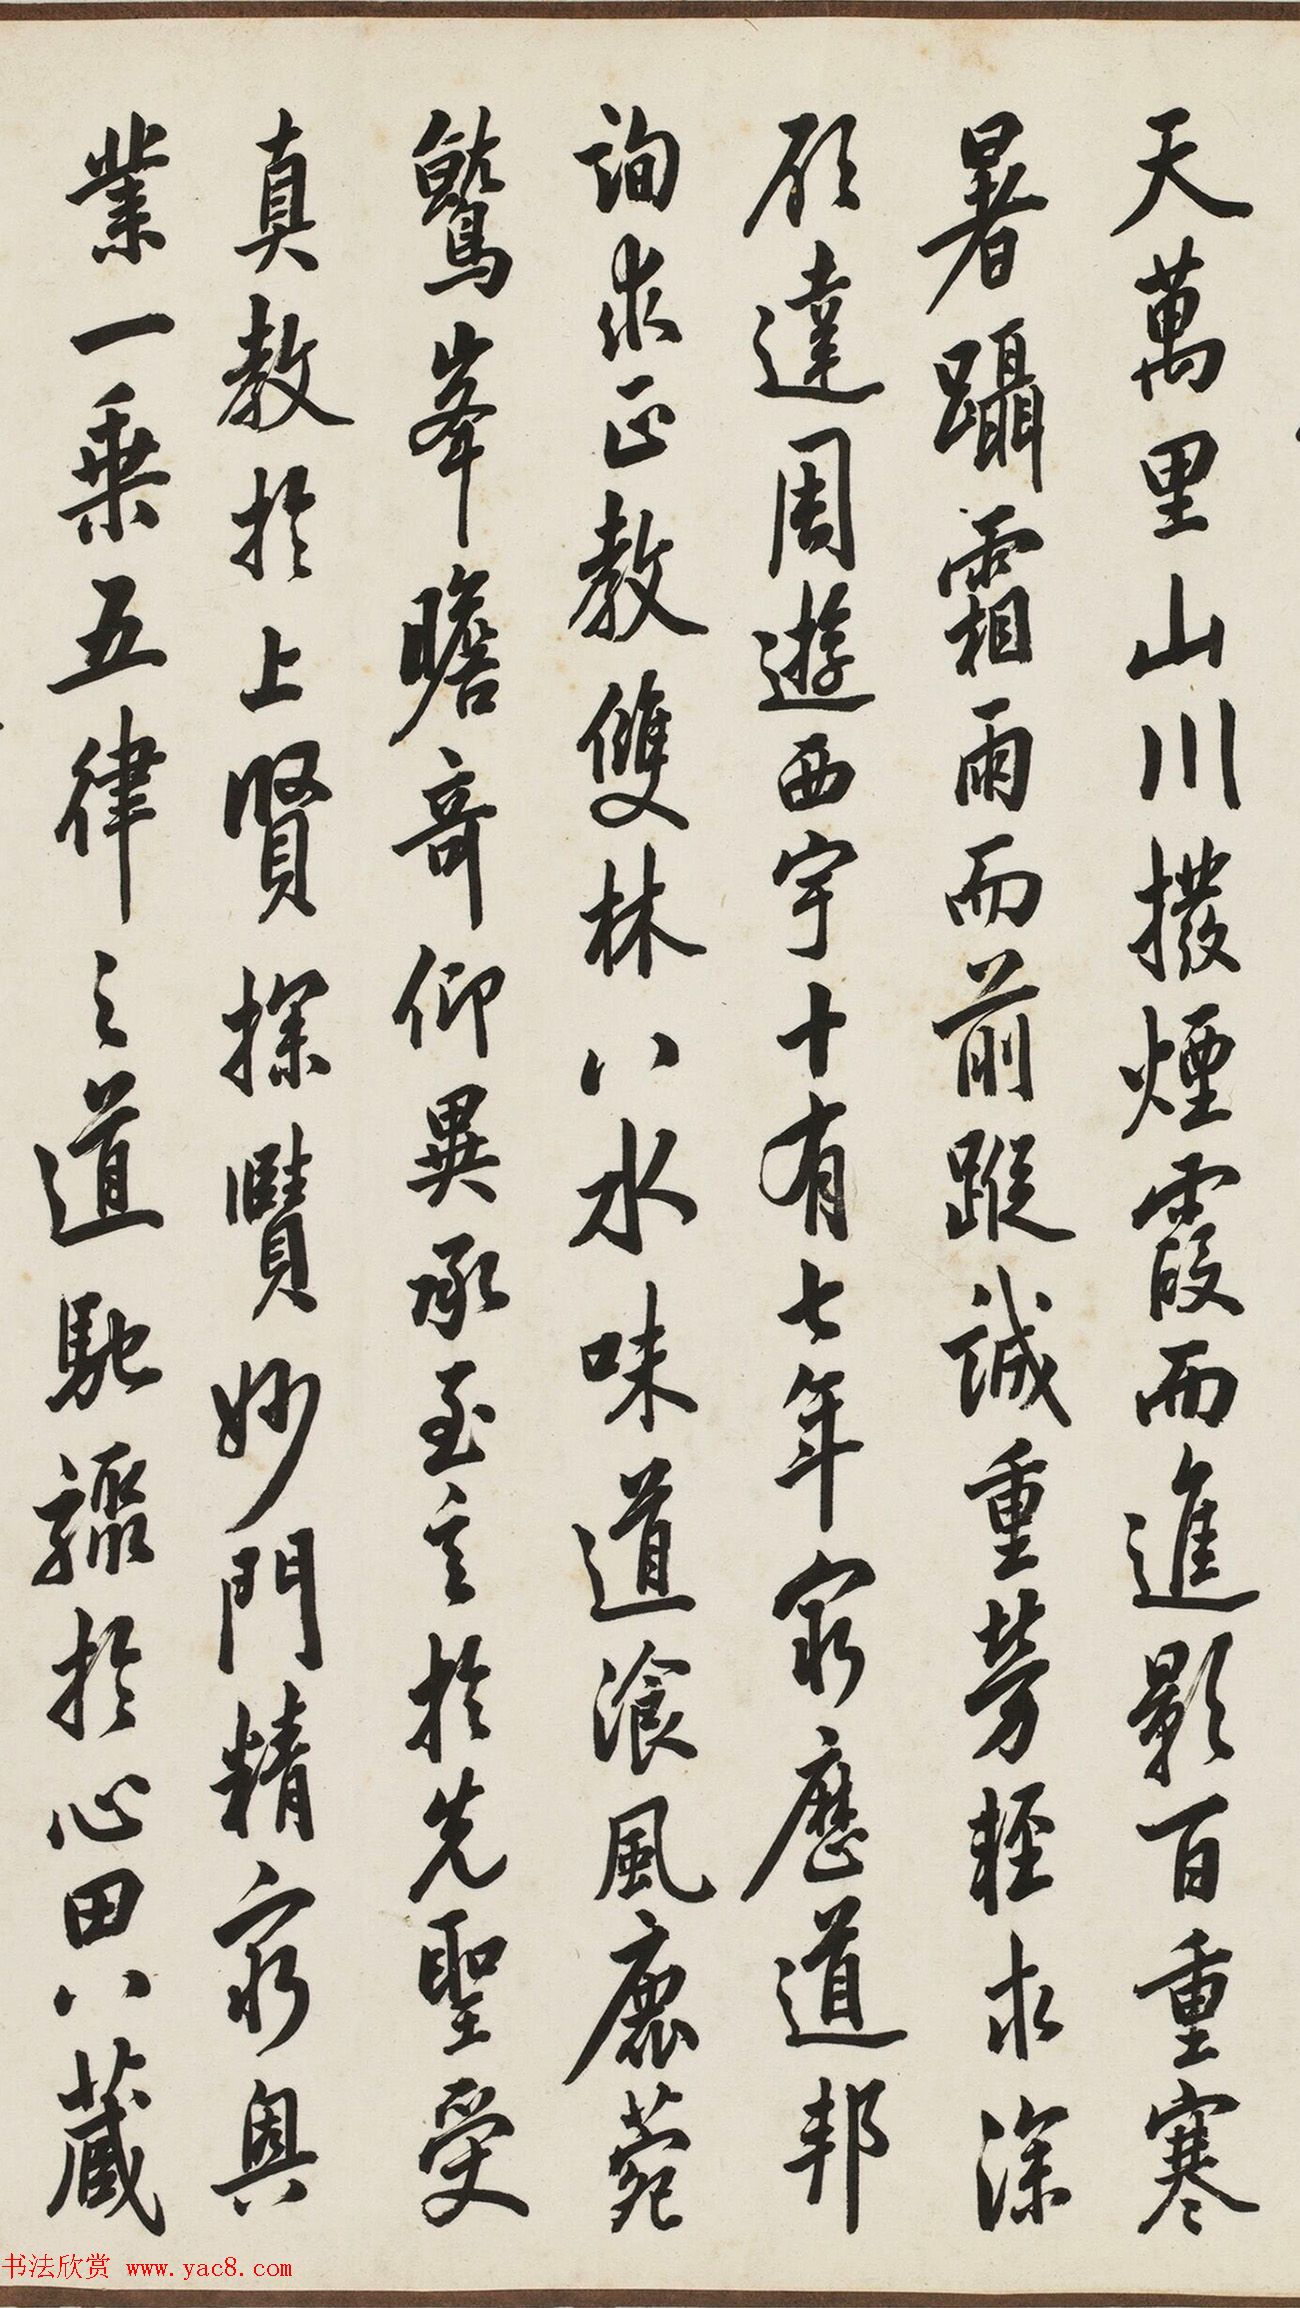 天萬里山川撥煙霞而進影百重寒
暑躡霜雨而前蹤誠重勞輕求深
願達周遊西宇十有七年窮歷道邦
詢求正教雙林八水味道飡風鹿菀
鷲峯瞻奇仰異承至言於先聖受
真教於上賢探賾妙門精窮奧
業一乘五律之道馳驟於心田八藏
书法欣赏 www.yac8.com